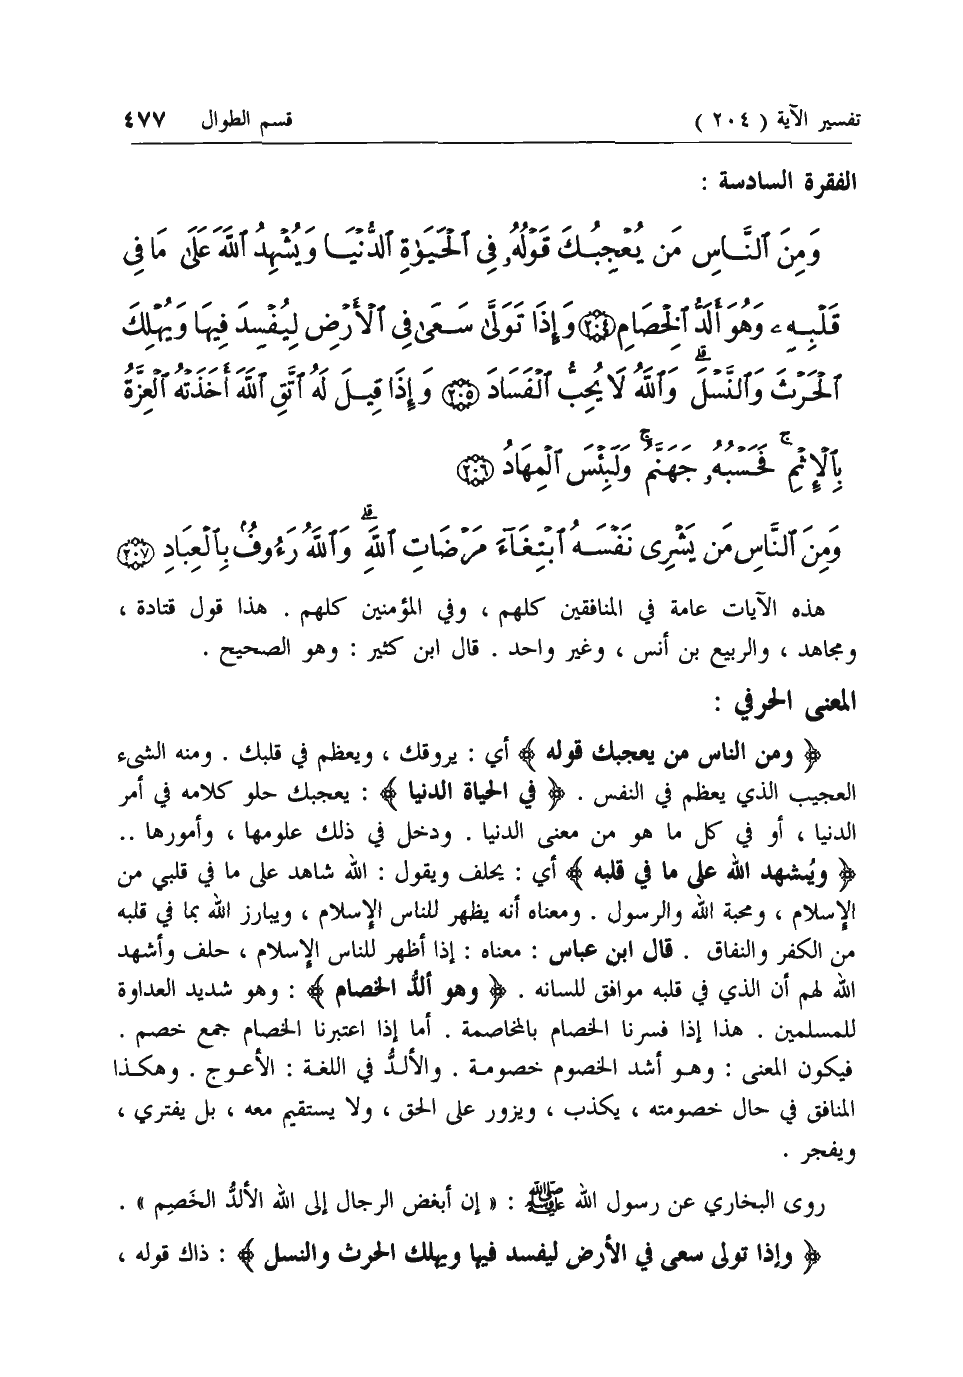 تفسير الآية ( ٢٠٤ ) قسم الطوال ٤٧٧
الفقرة السادسة :
وَمِنَ ٱلنَّاسِ مَن يُعْجِبُكَ قَوْلُهُۥ فِى ٱلْحَيَوٰةِ ٱلدُّنْيَا وَيُشْهِدُ ٱللَّهَ عَلَىٰ مَا فِى
قَلْبِهِۦ وَهُوَ أَلَدُّ ٱلْخِصَامِ ﴿٢٠٤﴾ وَإِذَا تَوَلَّىٰ سَعَىٰ فِى ٱلْأَرْضِ لِيُفْسِدَ فِيهَا وَيُهْلِكَ
ٱلْحَرْثَ وَٱلنَّسْلَ ۗ وَٱللَّهُ لَا يُحِبُّ ٱلْفَسَادَ ﴿٢٠٥﴾ وَإِذَا قِيلَ لَهُ ٱتَّقِ ٱللَّهَ أَخَذَتْهُ ٱلْعِزَّةُ
بِٱلْإِثْمِ ۚ فَحَسْبُهُۥ جَهَنَّمُ ۚ وَلَبِئْسَ ٱلْمِهَادُ ﴿٢٠٦﴾
وَمِنَ ٱلنَّاسِ مَن يَشْرِى نَفْسَهُ ٱبْتِغَآءَ مَرْضَاتِ ٱللَّهِ ۗ وَٱللَّهُ رَءُوفٌۢ بِٱلْعِبَادِ ﴿٢٠٧﴾
هذه الآيات عامة في المنافقين كلهم ، وفي المؤمنين كلهم . هذا قول قتادة ،
ومجاهد ، والربيع بن أنس ، وغير واحد . قال ابن كثير : وهو الصحيح .
المعنى الحرفي :
﴿ ومن الناس من يعجبك قوله ﴾ أي : يروقك ، ويعظم في قلبك . ومنه الشيء
العجيب الذي يعظم في النفس . ﴿ في الحياة الدنيا ﴾ : يعجبك حلو كلامه في أمر
الدنيا ، أو في كل ما هو من معنى الدنيا . ودخل في ذلك علومها ، وأمورها ..
﴿ ويُشهد الله على ما في قلبه ﴾ أي : يحلف ويقول : الله شاهد على ما في قلبي من
الإسلام ، ومحبة الله والرسول . ومعناه أنه يظهر للناس الإسلام ، ويبارز الله بما في قلبه
من الكفر والنفاق . قال ابن عباس : معناه : إذا أظهر للناس الإسلام ، حلف وأشهد
الله لهم أن الذي في قلبه موافق للسانه . ﴿ وهو ألدُّ الخصام ﴾ : وهو شديد العداوة
للمسلمين . هذا إذا فسرنا الخصام بالمخاصمة . أما إذا اعتبرنا الخصام جمع خصم .
فيكون المعنى : وهو أشد الخصوم خصومة . والألدُّ في اللغة : الأعوج . وهكذا
المنافق في حال خصومته ، يكذب ، ويزور على الحق ، ولا يستقيم معه ، بل يفتري ،
ويفجر .
روى البخاري عن رسول الله ﷺ : « إن أبغض الرجال إلى الله الألدُّ الخَصِم » .
﴿ وإذا تولى سعى في الأرض ليفسد فيها ويهلك الحرث والنسل ﴾ : ذاك قوله ،